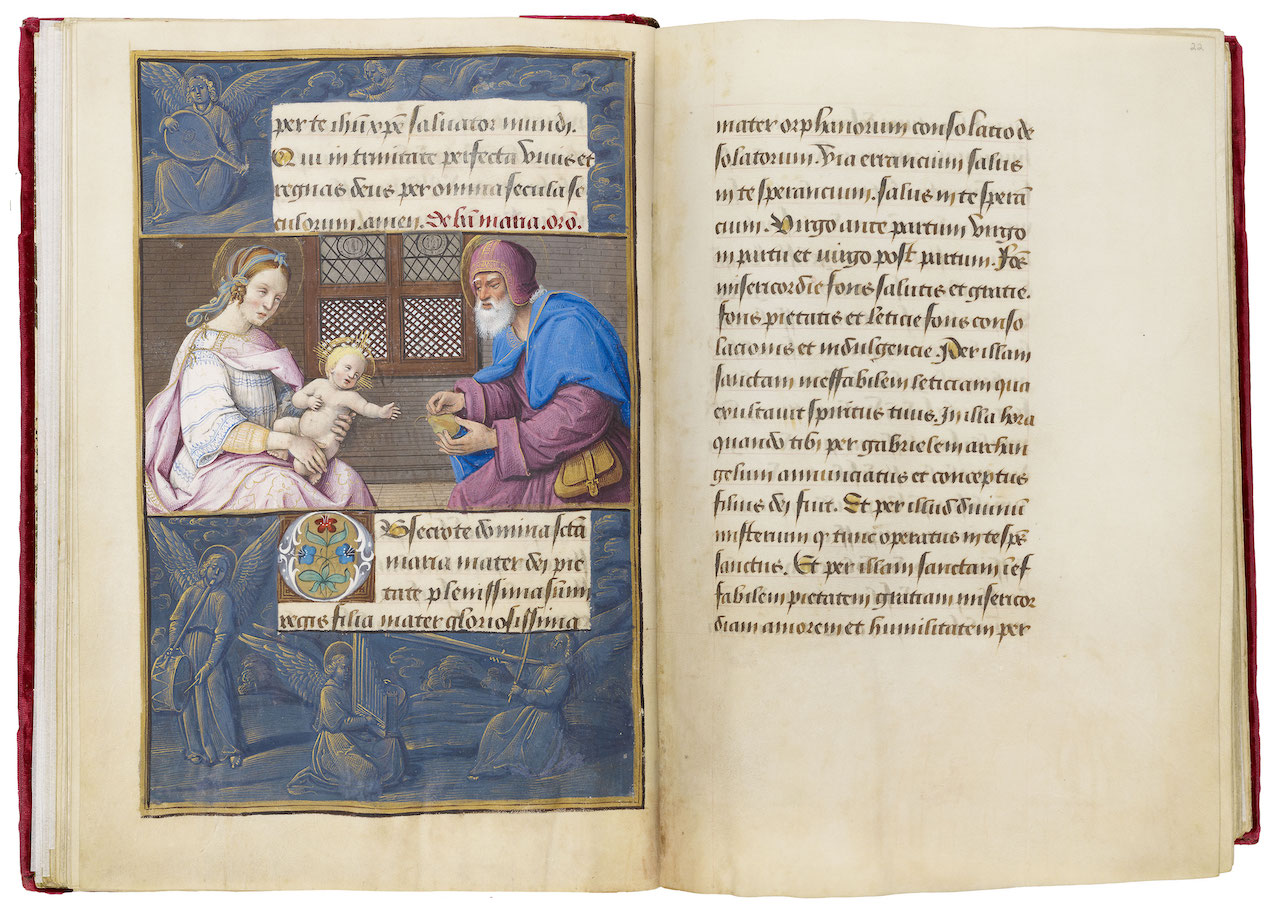 per te ihū xp̄e saluator mundi.
Qui in trinitate perfecta viuis et
regnas deus per omnia secula se
culorum. amen. De bt̄ maria. orō.
Obsecro te domina sctā
maria mater dei pie
tate plenissima sūmi
regis filia mater gloriosissima
22
mater orphanorum consolacio de
solatorum. Via errancium salus
in te sperancium. salus in te sperā
cium. Virgo ante partum virgo
in partu et virgo post partum. Fōs
misericordie fons salutis et gratie.
fons pietatis et leticie fons conso
lacionis et indulgencie. Per illam
sanctam ineffabilem leticiam qua
exultauit spiritus tuus. In illa hora
quando tibi per gabrielem archan
gelum annunciatus et conceptus
filius dei fuit. Et per illud diuinū
misterium q̄ tunc operatus in te sp̄s
sanctus. Et per illam sanctam īef
fabilem pietatem gratiam misericor
diam amorem et humilitatem per